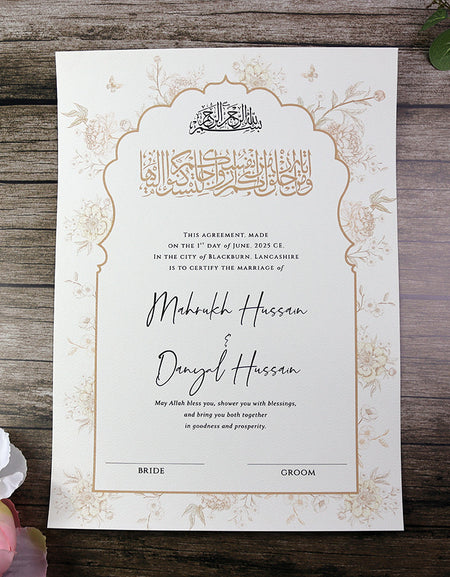 بسم الله الرحمن الرحيم
ومن آياته أن خلق لكم من أنفسكم أزواجا لتسكنوا إليها
This agreement, made
on the 1st day of June, 2025 CE,
In the city of Blackburn, Lancashire
is to certify the marriage of
Mahrukh Hussain
&
Danyal Hussain
May Allah bless you, shower you with blessings,
and bring you both together
in goodness and prosperity.
BRIDE GROOM